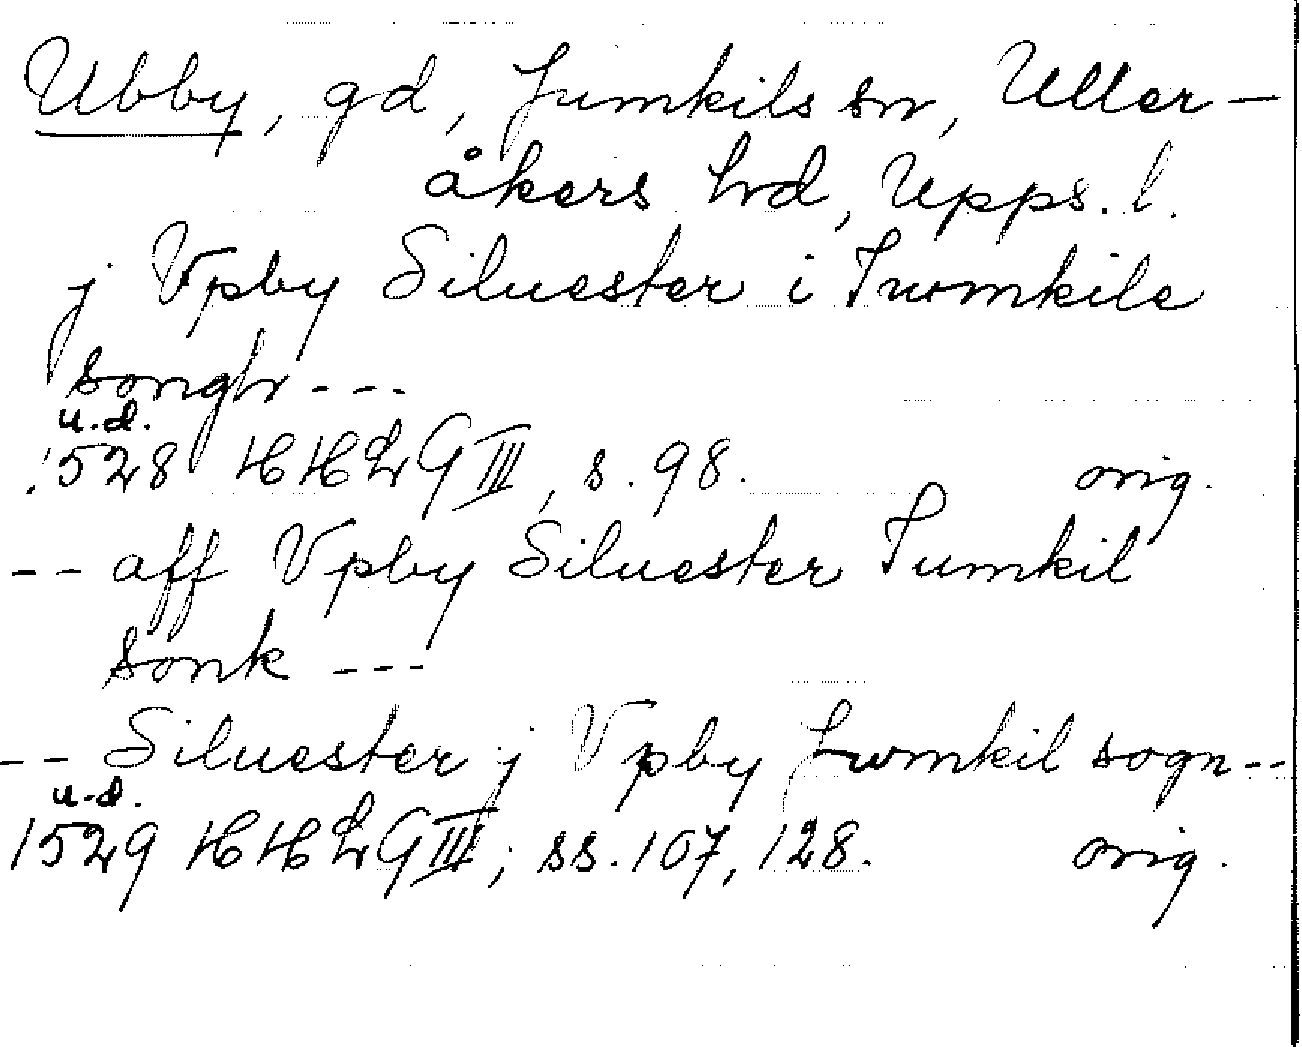 Ubby, gd, Jumkils sn, Uller-
åkers hd, Upps. l.
j Vpby Siluester i Iwmkile
songh ---
u.d.
1528 HHLG III, s. 98. orig.
-- aff Vpby Siluester Iumkil
sonk ---
-- Siluester j Vpby Jwmkil sogn --
u.d.
1529 HHLG III, ss. 107, 128. orig.